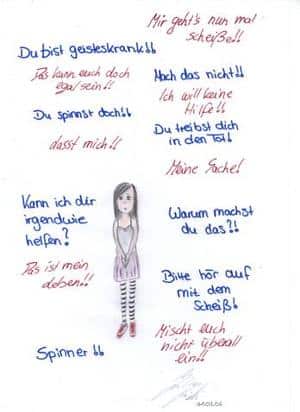 Mir geht's nun mal
scheiße!!
Du bist geisteskrank!!
Das kann euch doch
egal sein!!
Mach das nicht!!
Ich will keine
Hilfe!!
Du spinnst doch!!
Du treibst dich
in den Tot!
dasst mich!!
Meine Sache!
Kann ich dir
irgendwie
helfen?
Warum machst
du das?!
Das ist mein
Leben!!
Bitte hör auf
mit dem
Scheiß!
Mischt euch
nicht überall
ein!!
Spinner!!